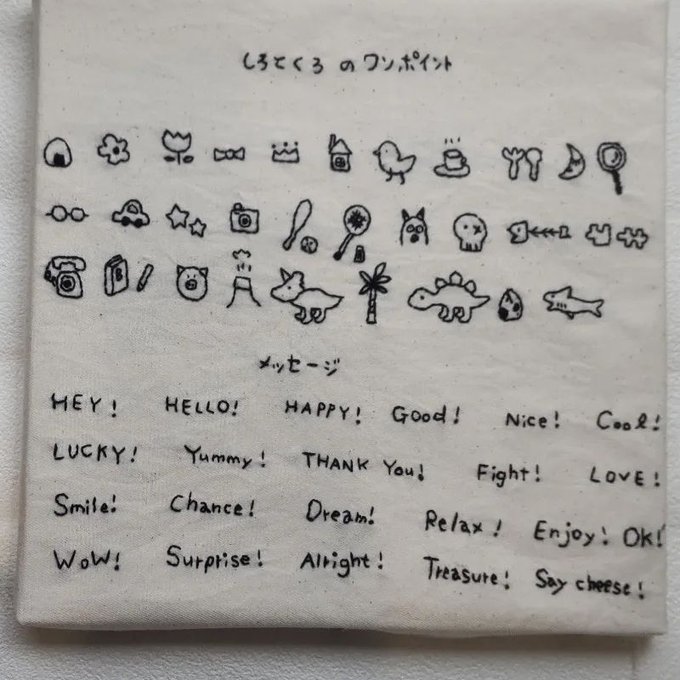 しろとくろ の ワンポイント
メッセージ
HEY! HELLO! HAPPY! Good! Nice! Cool!
LUCKY! Yummy! THANK You! Fight! LOVE!
Smile! Chance! Dream! Relax! Enjoy! OK!
WoW! Surprise! Alright! Treasure! Say cheese!